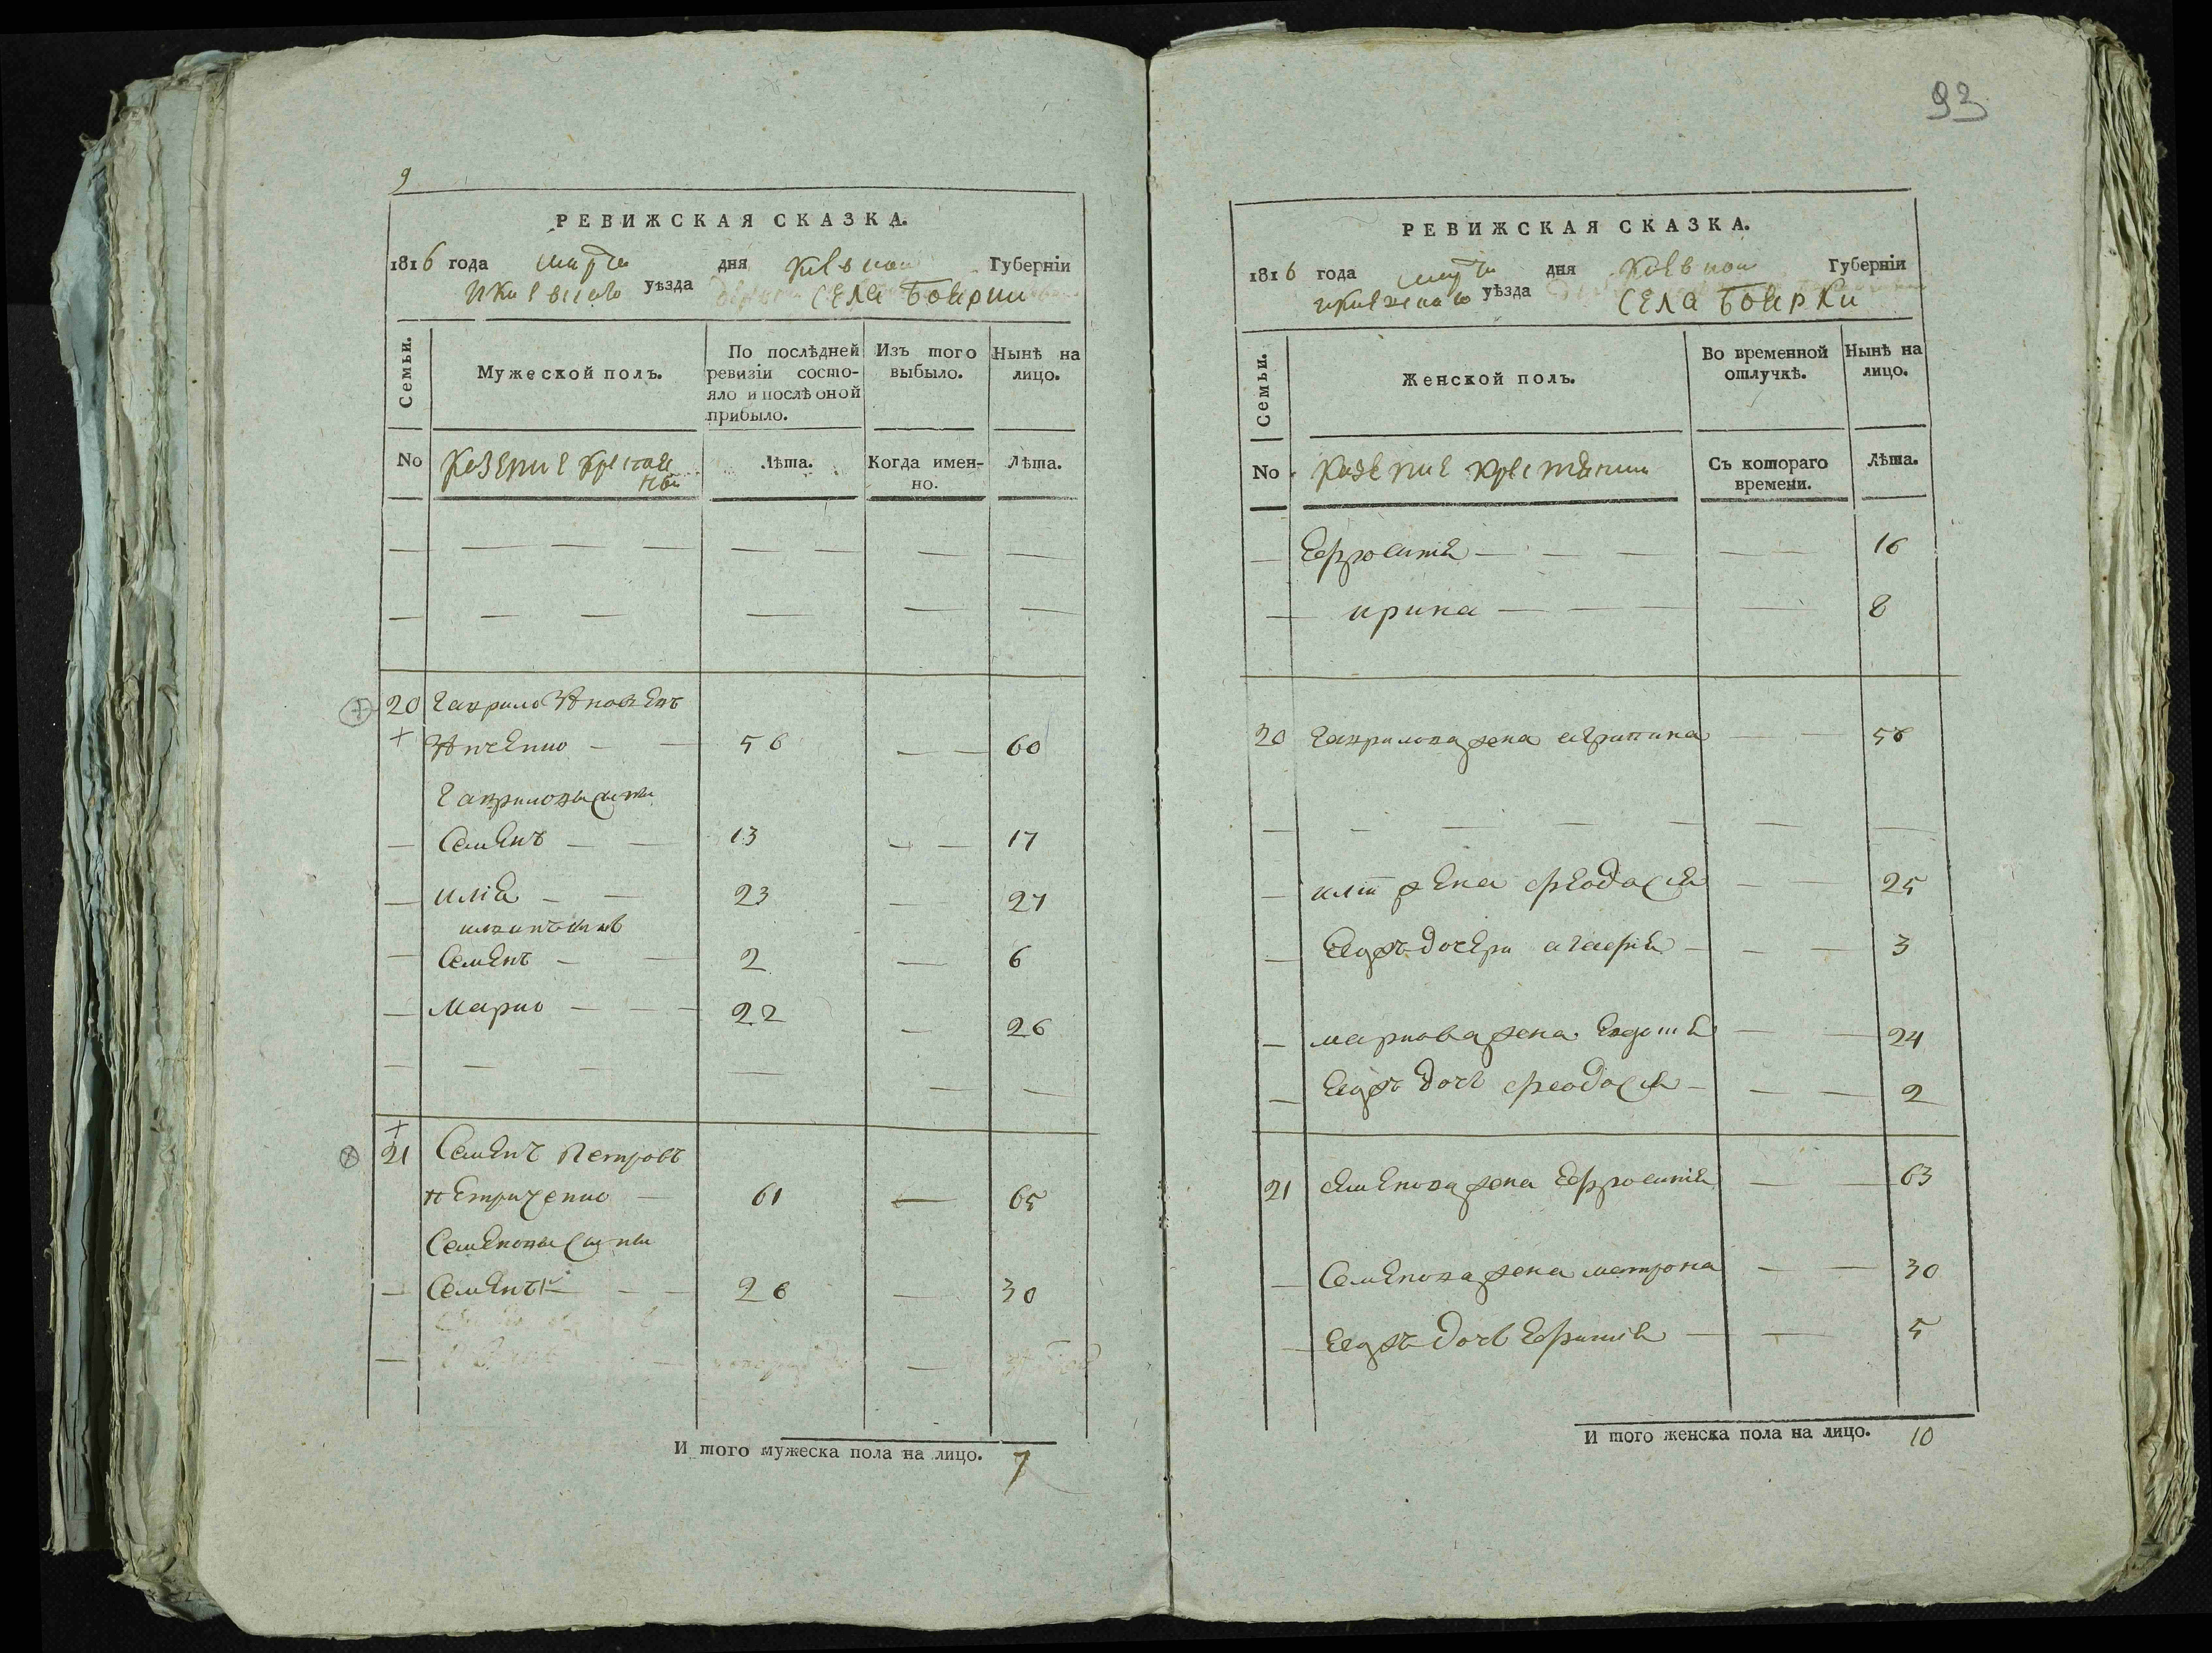 9
РЕВИЖСКАЯ СКАЗКА.
1816 года марта дня Киевской Губерніи
уѣзда села Боярки
Семьи.
Мужеской полъ.
По послѣдней ревизіи состо-
яло и послѣ оной
прибыло.
Изъ того
выбыло.
Нынѣ на
лицо.
No
Казеные крестяне
Лѣта.
Когда имен-
но.
Лѣта.
20 Гаврило
56 60
Гавриловы сыны
Семенъ 13 17
Илія 23 27
Семенъ 2 6
Марко 22 26
21 Семенъ Петровъ
Петриченко 61 65
Семеновы сыны
Семенъ 26 30
И того мужеска пола на лицо. 7
93
РЕВИЖСКАЯ СКАЗКА.
1816 года марта дня Киевской Губерніи
уѣзда села Боярки
Семьи.
Женской полъ.
Во временной
отлучкѣ.
Нынѣ на
лицо.
No
Казеные крестянки
Съ котораго
времени.
Лѣта.
Ефросинія 16
ирина 8
20 Гаврилова жена агрипина 56
жена феодосія 25
дочери агафия 3
маркова жена Евдотя 24
дочь феодосія 2
21 семенова жена Ефросинія 63
Семенова жена матрона 30
дочь Ефимія 5
И того женска пола на лицо. 10